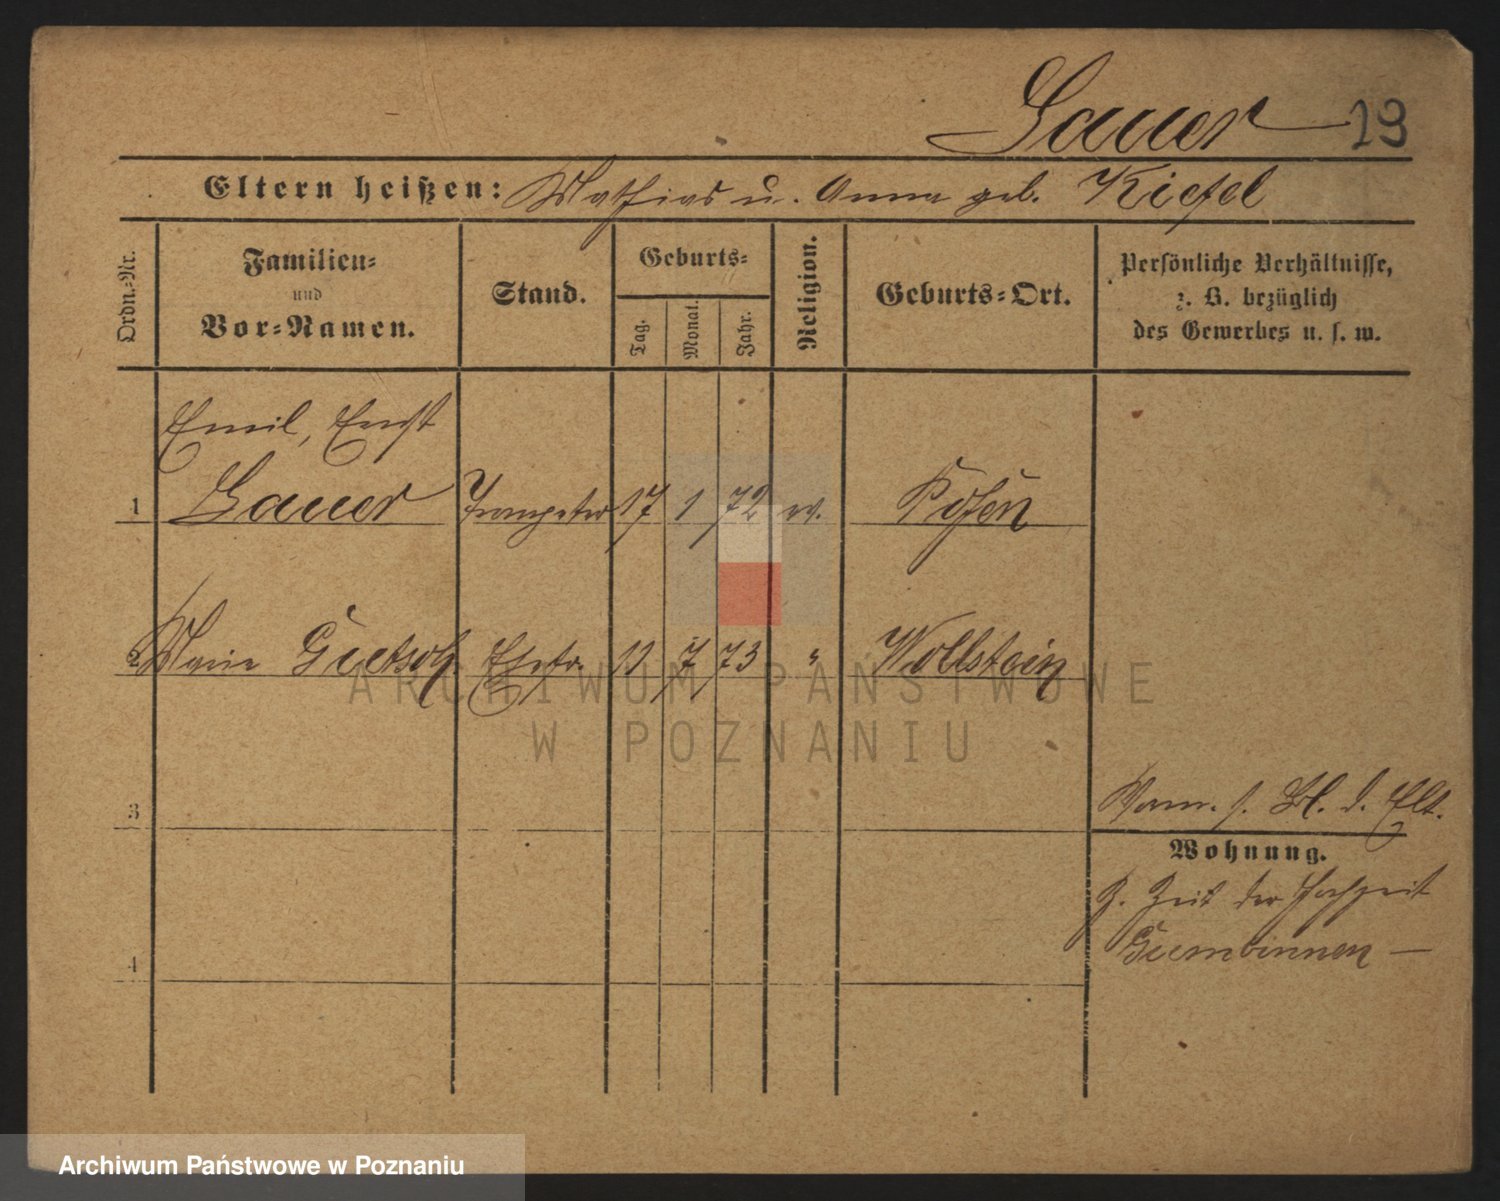 Sauer 19
Eltern heißen: Mathias u. Anna geb. Kiefel
Ordn.-Nr.
Familien-
und
Vor-Namen.
Stand.
Geburts-
Tag.
Monat.
Jahr.
Religion.
Geburts-Ort.
Persönliche Verhältnisse,
z. B. bezüglich
des Gewerbes u. s. w.
Emil, Ernst
1 Sauer Trompeter 17 1 72 ev. Posen
2 Marie Guetsch Ehefr. 7 73 " Wollstein
ARCHIWUM PAŃSTWOWE
W POZNANIU
3
Verm. s. Bl. d. Elt.
Wohnung.
Z. Zeit der Hochzeit
Gumbinnen —
4
Archiwum Państwowe w Poznaniu